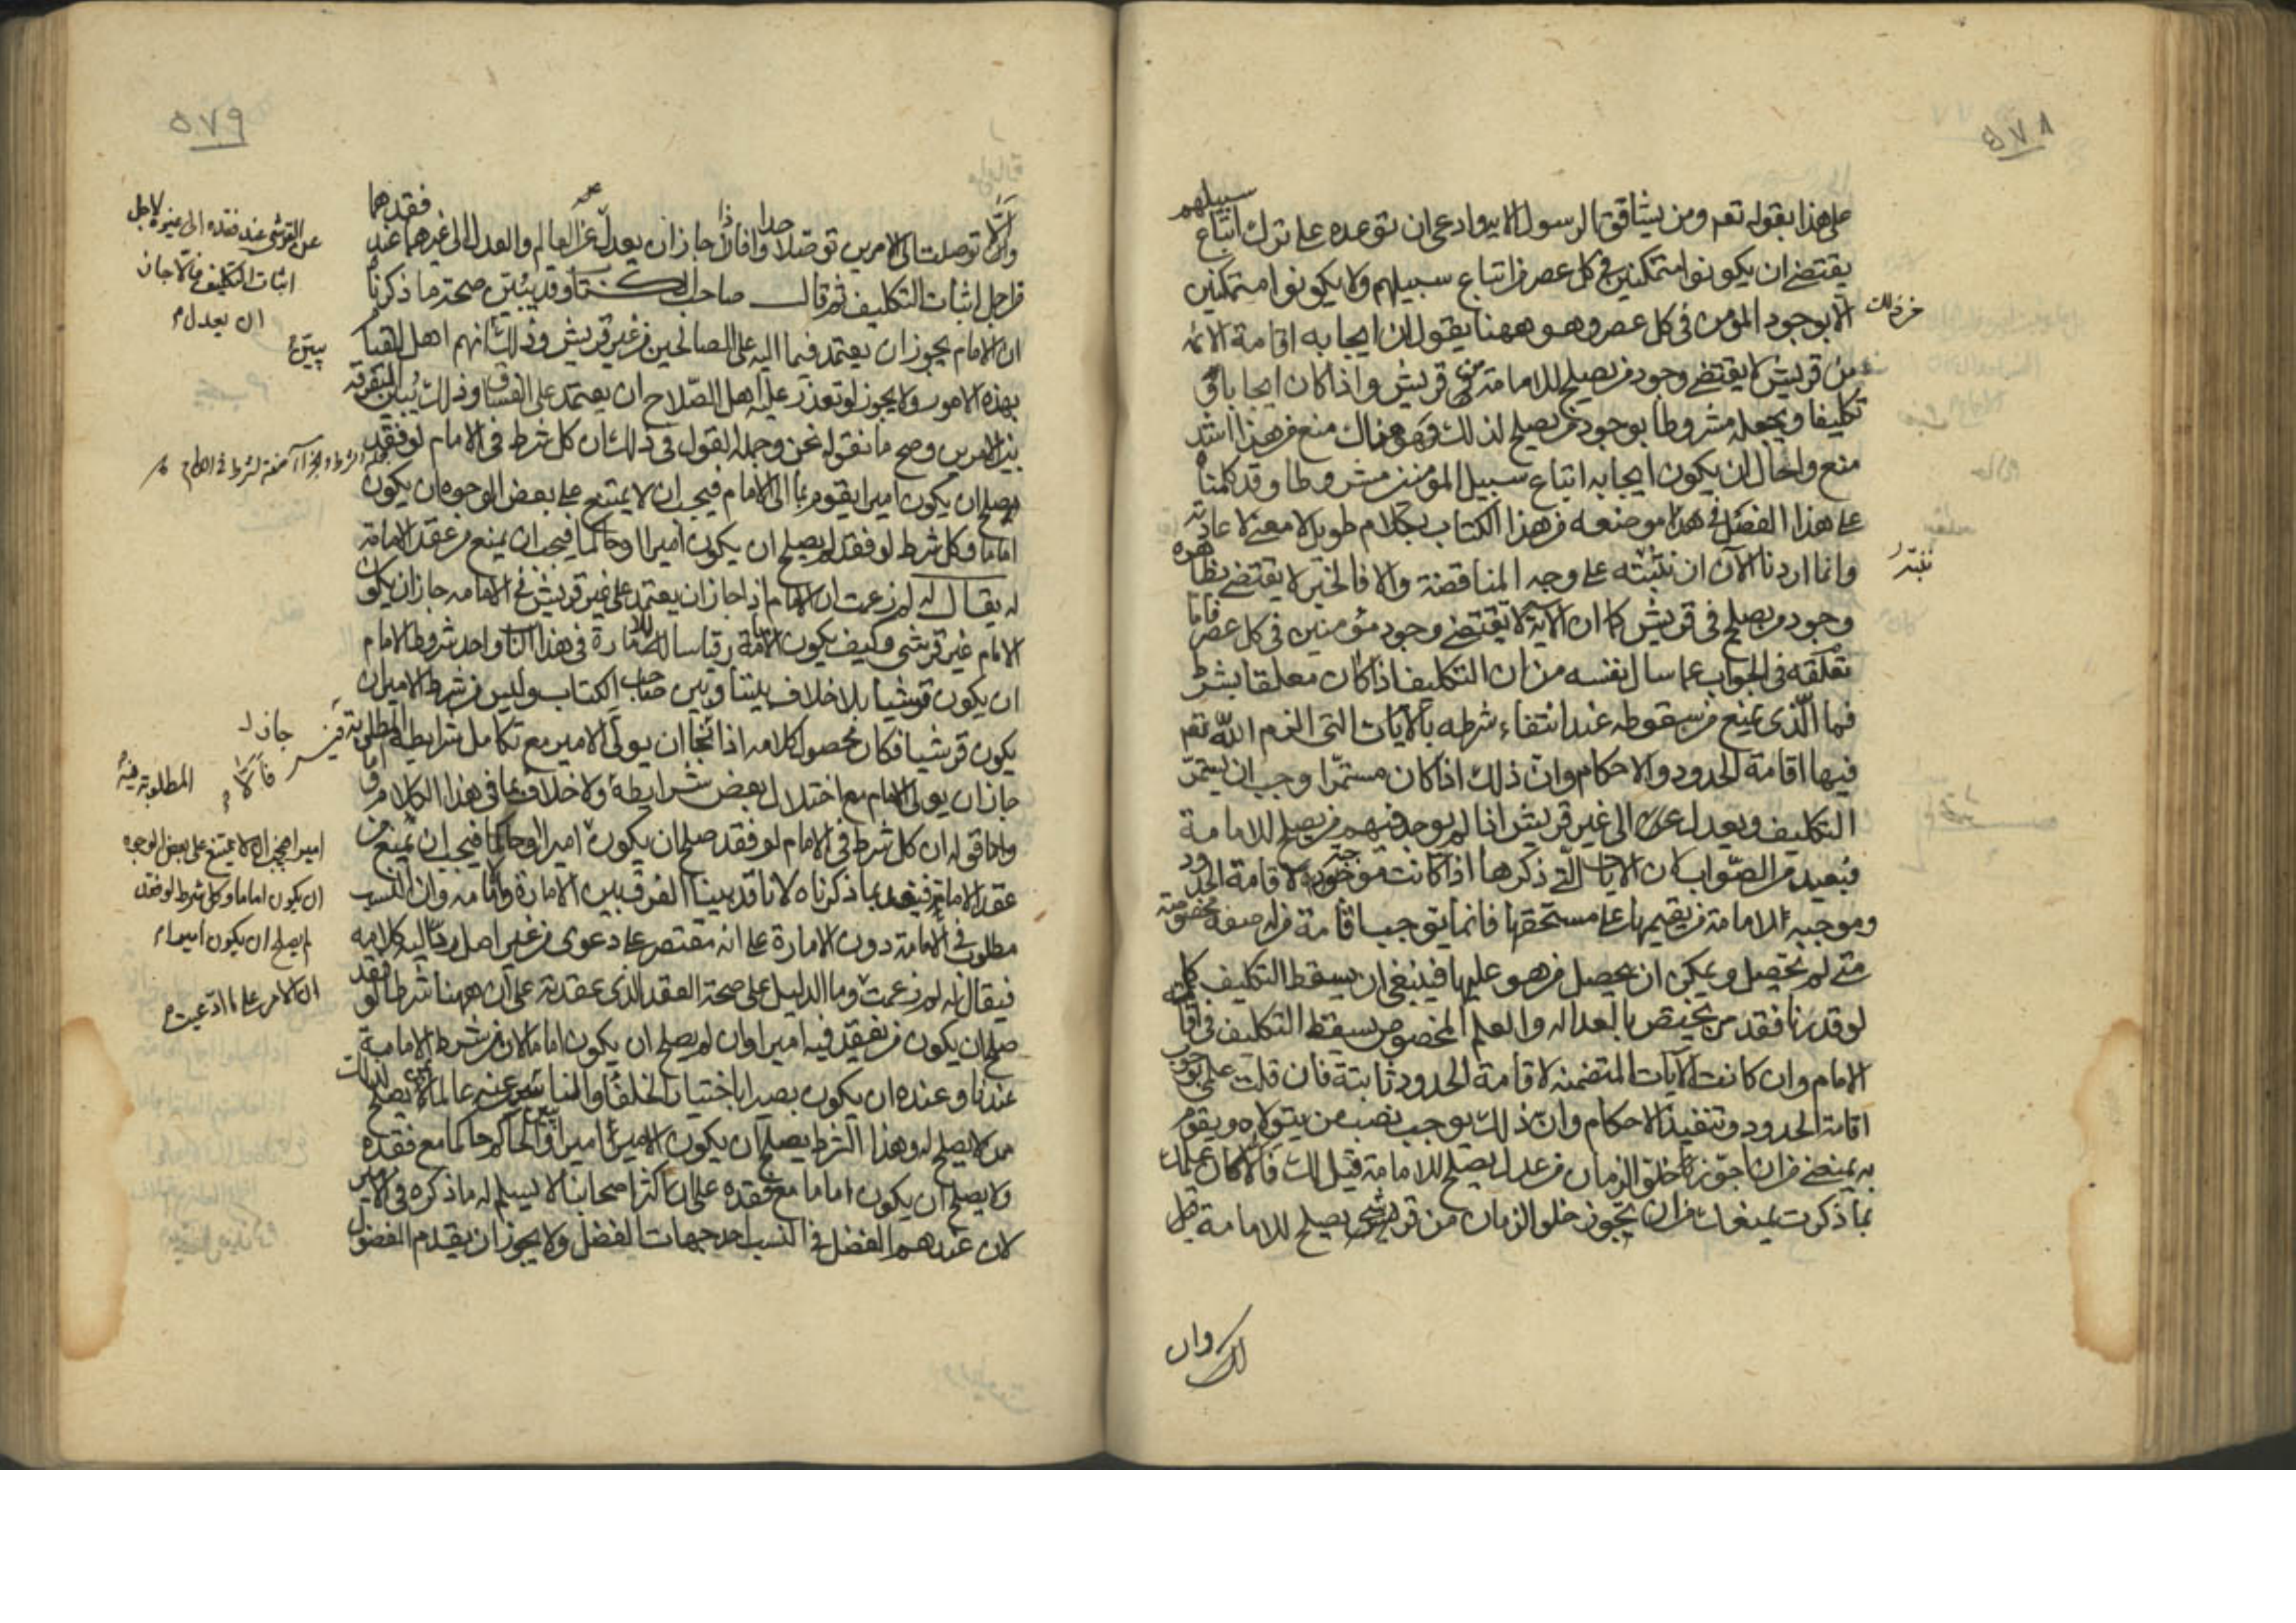 ٥٧٨
على هذا بقوله تعم ومن يشاقق الرسول الاية وادعى ان توعده على ترك اتباع سبيلهم
يقتضى ان يكونوا متمكنين فى كل عصر من اتباع سبيلهم ولا يكونوا متمكنين
من ذلك
الا بوجود المؤمن فى كل عصر وهو ههنا يقول ان ايجابه اقامة الائمة
من قريش لا يقتضى وجود من يصلح للامامة من قريش واذا كان ايجابا و
تكليفا ويجعله مشروطا بوجود من يصلح لذلك وهو هناك منع من هذا اشد
منع واحال ان يكون ايجابه اتباع سبيل المؤمنين مشروطا وقد كلمناه
على هذا الفصل فى موضعه من هذا الكتاب بكلام طويل لا معنى لاعادته
وانما اردنا الآن ان ننبه على وجه المناقضة والا فالخبر لا يقتضى بظاهره
وجود من يصلح فى قريش كما ان الآية لا تقتضى وجود مؤمنين فى كل عصر فاما
تعلقه فى الجواب عما سال نفسه من ان التكليف اذا كان معلقا بشرط
فما الذى يمنع من سقوطه عند انتفاء شرطه بالآيات التى الزم الله تعم
فيها اقامة الحدود والاحكام وان ذلك اذا كان مستمرا وجب ان يستمر
التكليف ويعدل الى غير قريش اذا لم يوجد فيهم من يصلح للامامة
فبعيد من الصواب لان الآيات التى ذكرها اذا كانت موجبة لاقامة الحدود
وموجبة لامامة من يقيمها على مستحقها فانما توجب اقامة من له صفة مخصوصة
متى لم تحصل ويمكن ان يحصل من هو عليها فينبغى ان يسقط التكليف كما انه
لو قدرنا فقد من يختص بالعدالة والعلم المخصوص يسقط التكليف فى اقامة
الامام وان كانت الآيات المتضمنة لاقامة الحدود ثابتة فان قلت على بوجوب
اقامة الحدود وتنفيذ الاحكام وان ذلك يوجب نصب من يتولاه ويقوم
به يمنعنى من ان اجوز خلو الزمان من عدل يصلح للامامة قيل لك فالا كان علمك
بما ذكرت يمنعك من ان تجوز خلو الزمان من قرشى يصلح للامامة قيل
لك وان
٥٧٩
توصلت الى الامرين توصلا واحدا فان جاز ان يعدل عن العالم والعدل الى غيرهما عند فقدهما
من اجل اثبات التكليف ثم قال صاحب الكتاب وقد يبين صحة ما ذكرناه
ان الامام يجوز ان يعتمد فيما اليه على الصالحين من غير قريش وذلك انهم اهل للقيام
بهذه الامور ولا يجوز لو تعذر عليه اهل الصلاح ان يعتمد على الفساق وذلك يبين التفرقة
بين الامرين وصح ما نقوله نحن وجملة القول فى ذلك ان كل شرط فى الامام لو فقد
يصلح ان يكون اميرا يقوم بما الى الامام فيجب ان لا يمتنع على بعض الوجوه ان يكون
اماما وكل شرط لو فقد لم يصلح ان يكون اميرا او حاكما فيجب ان يمنع من عقد الامامة
له يقال له لم زعمت ان الامام اذا جاز ان يعتمد على غير قريش فى الامامه جاز ان يكون
الامام غير قرشى وكيف يكون الامامة قياسا للامارة فى هذا الباب واحد شروط الامام
ان يكون قرشيا بلا خلاف بيننا وبين صاحب الكتاب وليس من شرط الامير ان
يكون قرشيا فكان محصول كلامه اذا جاز ان يولى الامير مع تكامل شرايطه المطلوبة
جاز ان يولى الامام مع اختلال بعض شرايطه ولا خلاف بما فى هذا الكلام
واما قوله ان كل شرط فى الامام لو فقد صلح ان يكون اميرا او حاكما فيجب ان يمنع من
عقد الامامة فيفسد بما ذكرناه لانا قد بينا الفرق بين الامارة والامامه وان النسب
مطلوب فى الامامة دون الامارة على انه مقتصر على دعوى من غير اصل يرد اليه كلامه
فيقال له لم زعمت وما الدليل على صحة العقد الذى عقدته على ان ههنا شرطا لو فقد
صلح ان يكون من يفقد فيه اميرا وان لم يصلح ان يكون اماما لان من شرط الامامة
عندنا وعنده ان يكون بصيرا باختيار الخلفاء
ممن لا يصلح له وهذا الشرط يصلح ان يكون الامير اميرا والحاكم حاكما مع فقده
ولا يصلح ان يكون اماما مع فقده على ان اكثر اصحابنا لا يسلم له ما ذكره فى الامير
لان عندهم الفضل فى النسب احد جهات الفضل ولا يجوز ان يقدم المفضول
عن القرشى عند فقده الى غيره لاجل
اثبات التكليف والا جاز
ان يعدل
يبين
جاز
المطلوبة فيه
اميرا فيجب ان لا يمتنع على بعض الوجوه
ان يكون اماما وكل شرط لو فقد
لم يصلح ان يكون اميرا
ان الامر على ما ادعيت